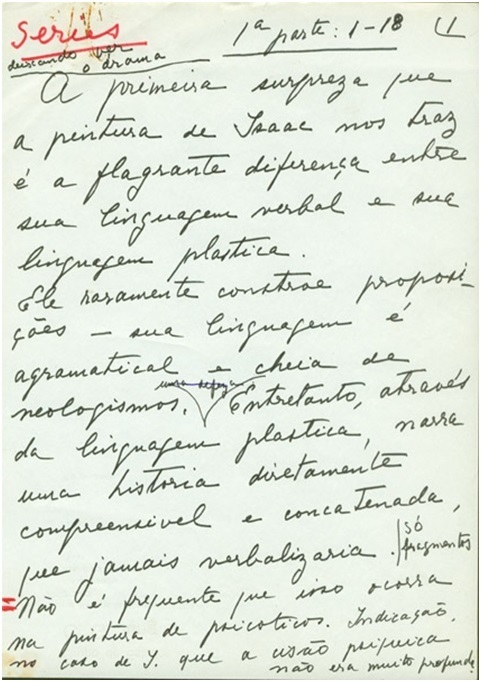 Series
1ª parte: 1-18 1
deixando ver
o drama
A primeira surpreza que
a pintura de Isaac nos traz
é a flagrante diferença entre
sua linguagem verbal e sua
linguagem plastica.
Ele raramente constroe proposi-
ções — sua linguagem é
agramatical e cheia de
uma defeza
neologismos. Entretanto, através
da linguagem plastica, narra
uma historia diretamente
compreensivel e concatenada,
que jamais verbalizaria. só
fragmentos
Não é frequente que isso ocorra
na pintura de psicoticos. Indicação,
no caso de I. que a cisão psiquica
não era muito profunda